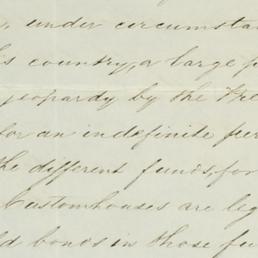 , under circumsta
s country, a large p
jeopardy by the Pre
for an indefinite per
the different funds, for
Customhouses are leg
d bonds in those fu